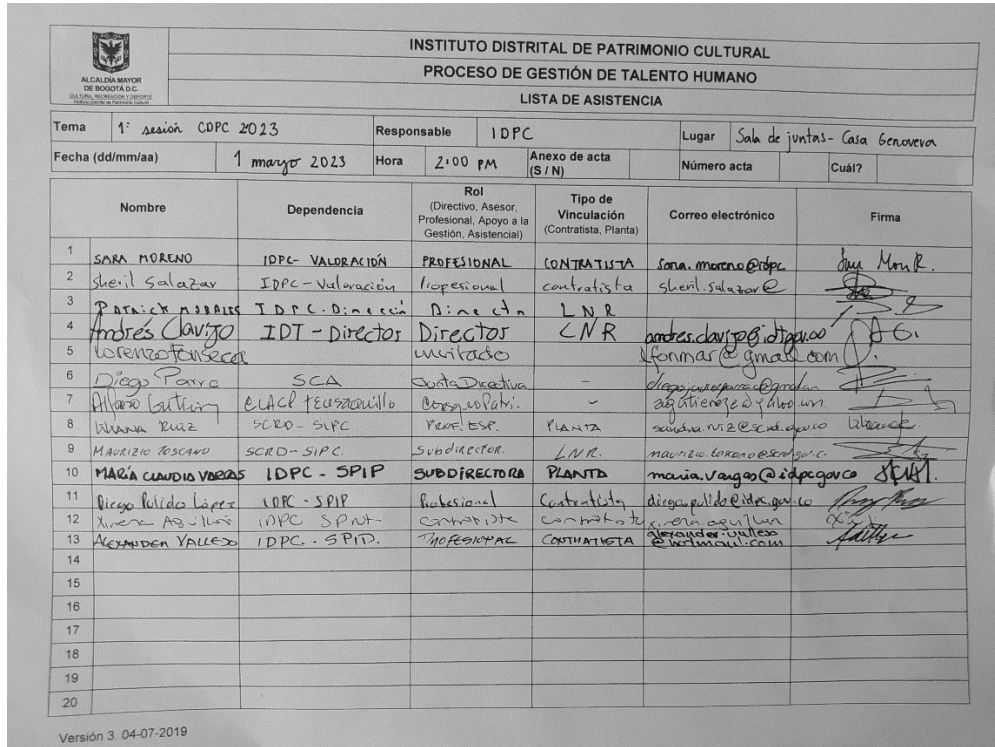 ALCALDÍA MAYOR
DE BOGOTÁ D.C.
CULTURA, RECREACIÓN Y DEPORTE
Instituto Distrital de Patrimonio Cultural
INSTITUTO DISTRITAL DE PATRIMONIO CULTURAL
PROCESO DE GESTIÓN DE TALENTO HUMANO
LISTA DE ASISTENCIA
Tema 1ª sesión CDPC 2023 Responsable IDPC Lugar Sala de juntas- Casa Genoveva
Fecha (dd/mm/aa) 1 marzo 2023 Hora 2:00 PM Anexo de acta (S / N) Número acta Cuál?
Nombre Dependencia Rol (Directivo, Asesor, Profesional, Apoyo a la Gestión, Asistencial) Tipo de Vinculación (Contratista, Planta) Correo electrónico Firma
1 SARA MORENO IDPC- VALORACIÓN PROFESIONAL CONTRATISTA sara.moreno@idpc
2 Sheril Salazar IDPC-Valoración Profesional contratista sheril.salazar@
3 PATRICK MORALES IDPC.Dirección Director LNR
4 Andrés Clavijo IDT-Director Director LNR andres.clavijo@idt.gov.co
5 Lorenzo Fonseca invitado lfonmar@gmail.com
6 Diego Parra SCA Junta Directiva -
7 CLACP Teusaquillo -
8 Ruiz SCRD-SIPC PROF. ESP. PLANTA sandra.ruiz@scrd.gov.co
9 MAURIZIO TOSCANO SCRD-SIPC. Subdirector. LNR.
10 MARÍA CLAUDIA VARGAS IDPC-SPIP SUBDIRECTORA PLANTA maria.vargas@idpc.gov.co
11 Diego Pulido López IDPC-SPIP Profesional Contratista diego.pulido@idpc.gov.co
12 IDPC Contratista contratista
13 ALEXANDER VALLEJO IDPC.-SPIP. PROFESIONAL CONTRATISTA alexander.vallejo @hotmail.com
14
15
16
17
18
19
20
Versión 3. 04-07-2019